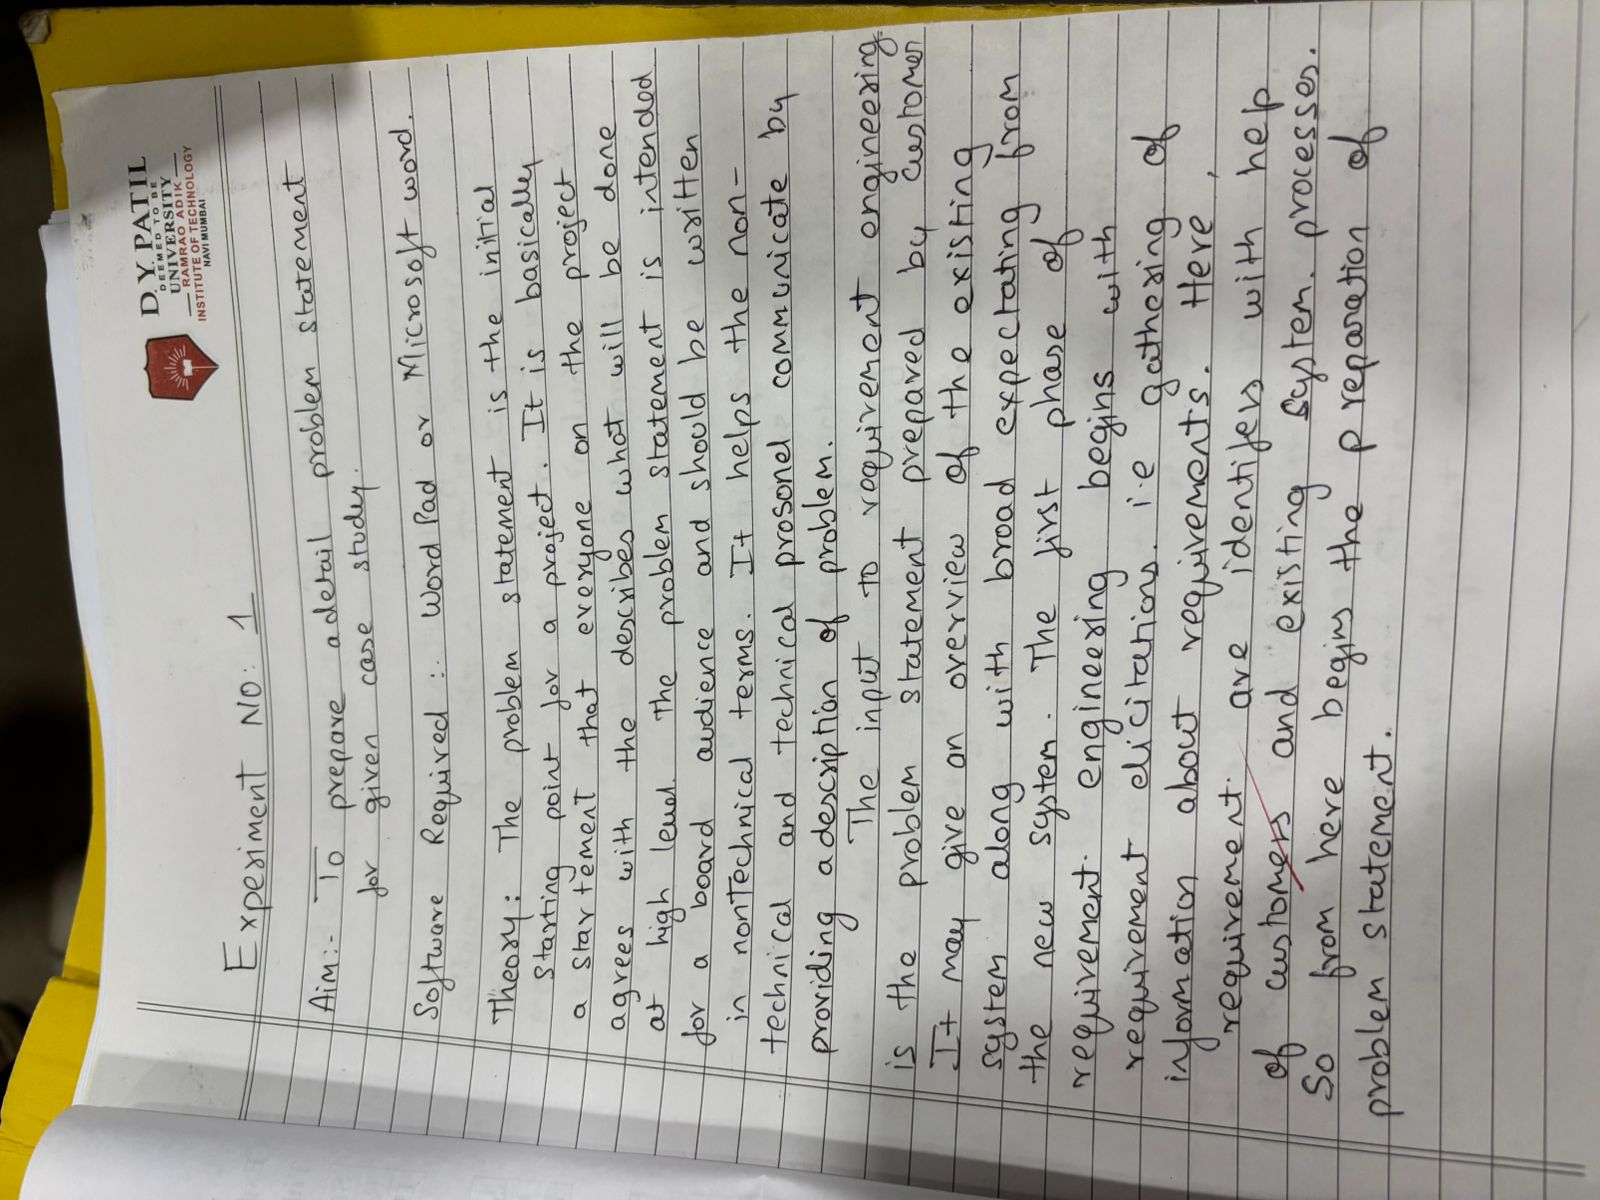 D.Y. PATIL
DEEMED TO BE
UNIVERSITY
RAMRAO ADIK
INSTITUTE OF TECHNOLOGY
NAVI MUMBAI
Experiment NO: 1
Aim:- To prepare a detail problem statement
for given case study.
Software Required :. Word Pad or Microsoft word.
Theory: The problem statement is the initial
starting point for a project. It is basically
a startement that everyone on the project
agrees with the describes what will be done
at high level. The problem statement is intended
for a board audience and should be written
in nontechnical terms. It helps the non-
technical and technical prosonel communicate by
providing a description of problem.
The input to requirement engineering
is the problem statement prepared by customer
It may give an overview of the existing
system along with broad expectating from
the new system. The first phase of
requirement. engineering begins with
requirement elicitations. i.e gathering of
information about requirements. Here,
requirement. are identifers with help
of customers and existing system. processes.
So from here begins the preparation of
problem statement.